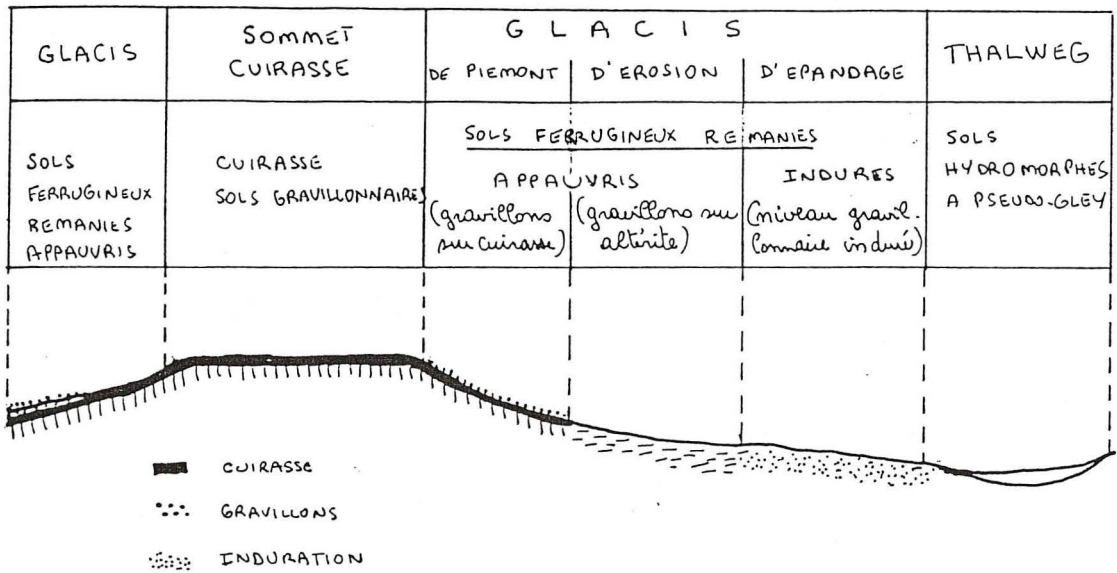 GLACIS
SOMMET
CUIRASSE
GLACIS
DE PIEMONT
D'EROSION
D'EPANDAGE
THALWEG
SOLS
FERRUGINEUX
REMANIES
APPAUVRIS
CUIRASSE
SOLS GRAVILLONNAIRES
SOLS FERRUGINEUX REMANIES
APPAUVRIS
(gravillons
sur cuirasse)
(gravillons sur
altérite)
INDURES
(niveau gravil-
lonnaire induré)
SOLS
HYDROMORPHES
A PSEUDO-GLEY
CUIRASSE
GRAVILLONS
INDURATION